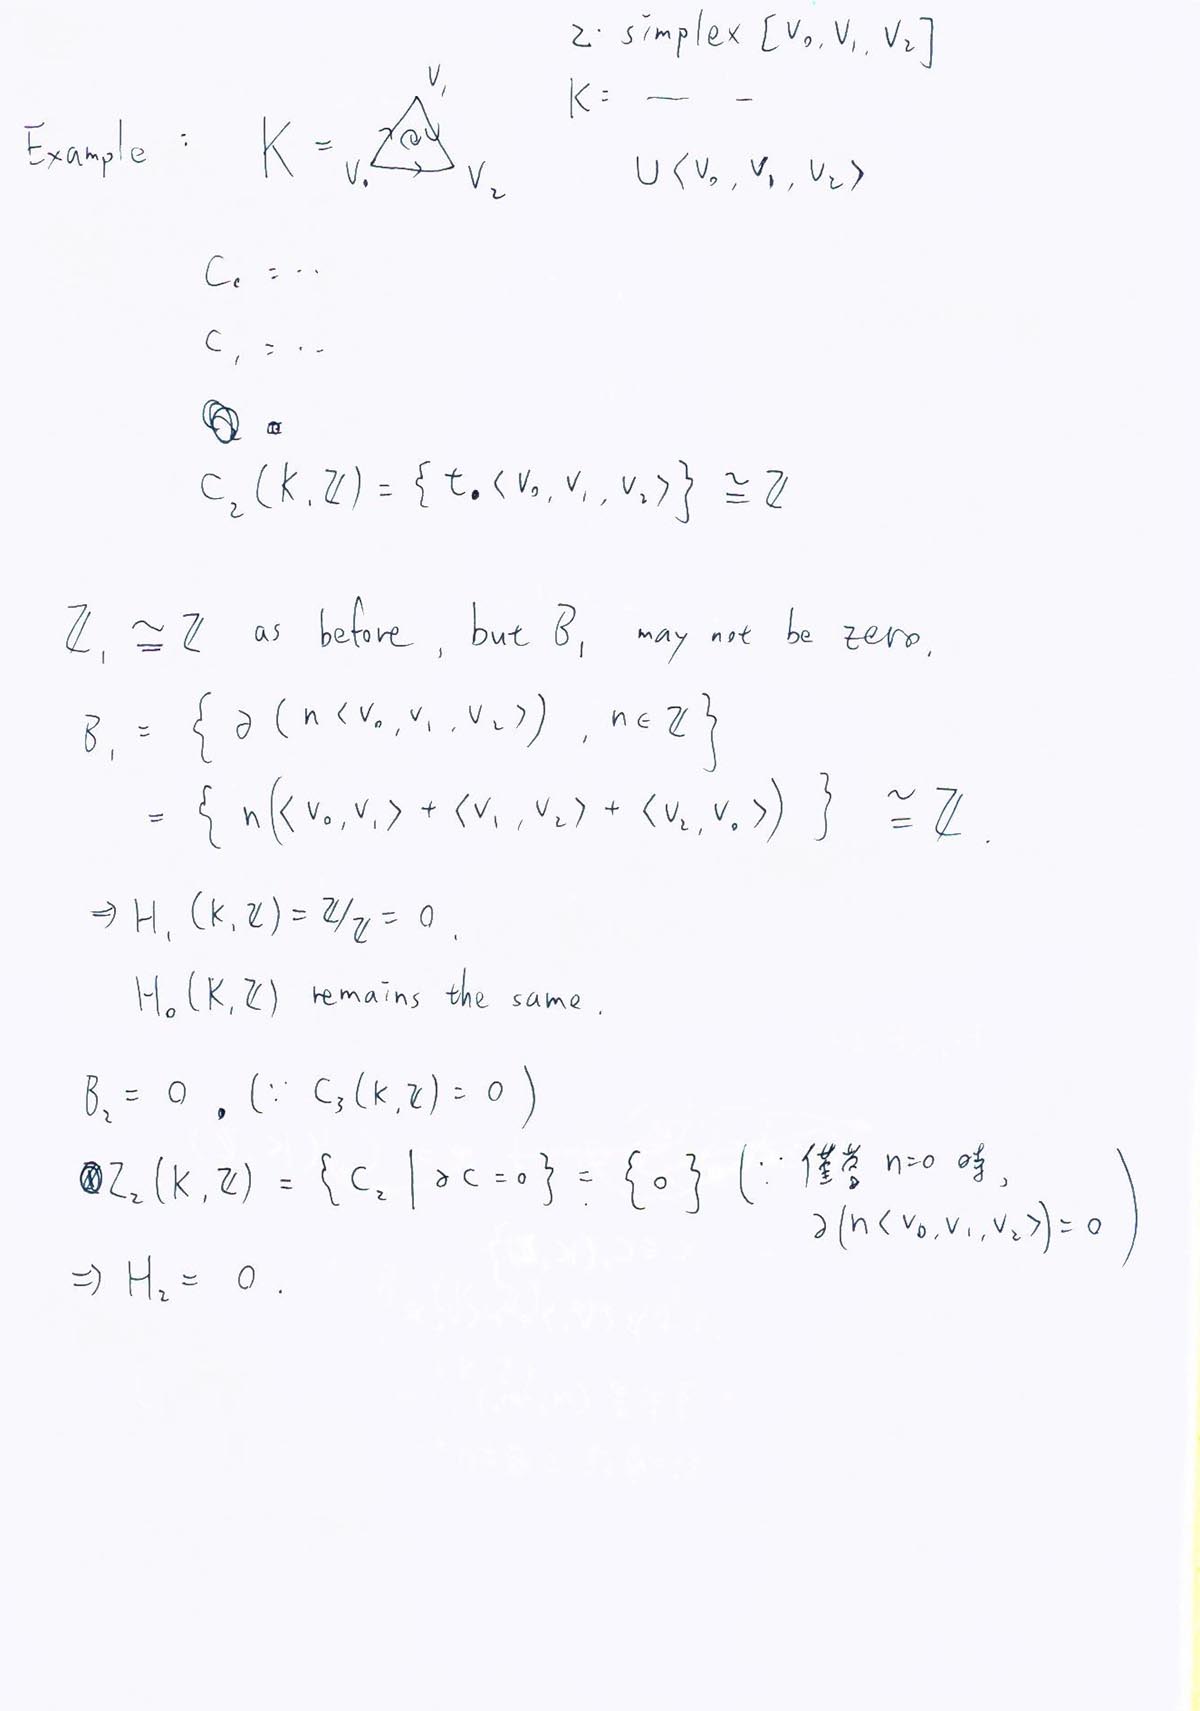 2. simplex [V₀, V₁, V₂]
K = — –
∪ <V₀, V₁, V₂>
Example : K =
V₁
V₀
V₂
C₀ = ..
C₁ = ..
C₂ (K, ℤ) = { t. <V₀, V₁, V₂> } ≅ ℤ
Z₁ ≅ ℤ as before, but B₁ may not be zero.
B₁ = { ∂ ( n <V₀, V₁, V₂> ) , n ∈ ℤ }
= { n( <V₀, V₁> + <V₁, V₂> + <V₂, V₀> ) } ≅ ℤ.
⇒ H₁ (K, ℤ) = ℤ/ℤ = 0.
H₀ (K, ℤ) remains the same.
B₂ = 0 . (∵ C₃ (K, ℤ) = 0 )
Z₂ (K, ℤ) = { C₂ | ∂C = 0 } = { 0 } (∵ 僅當 n=0 時,
∂(n <V₀, V₁, V₂>) = 0 )
⇒ H₂ = 0.